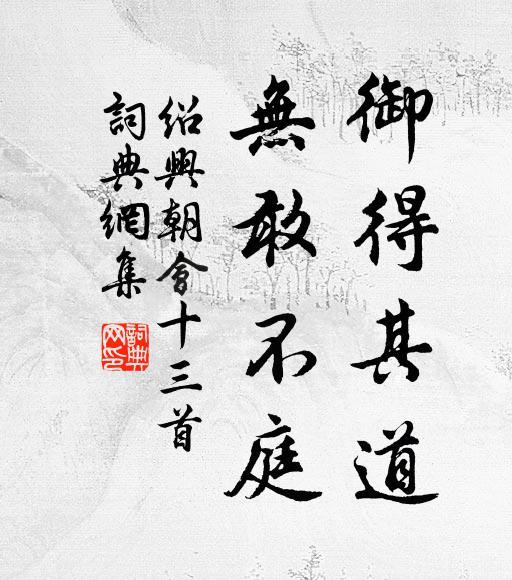 御得其道
無敢不庭
紹興朝會十三首
詞典網集
詞典网印